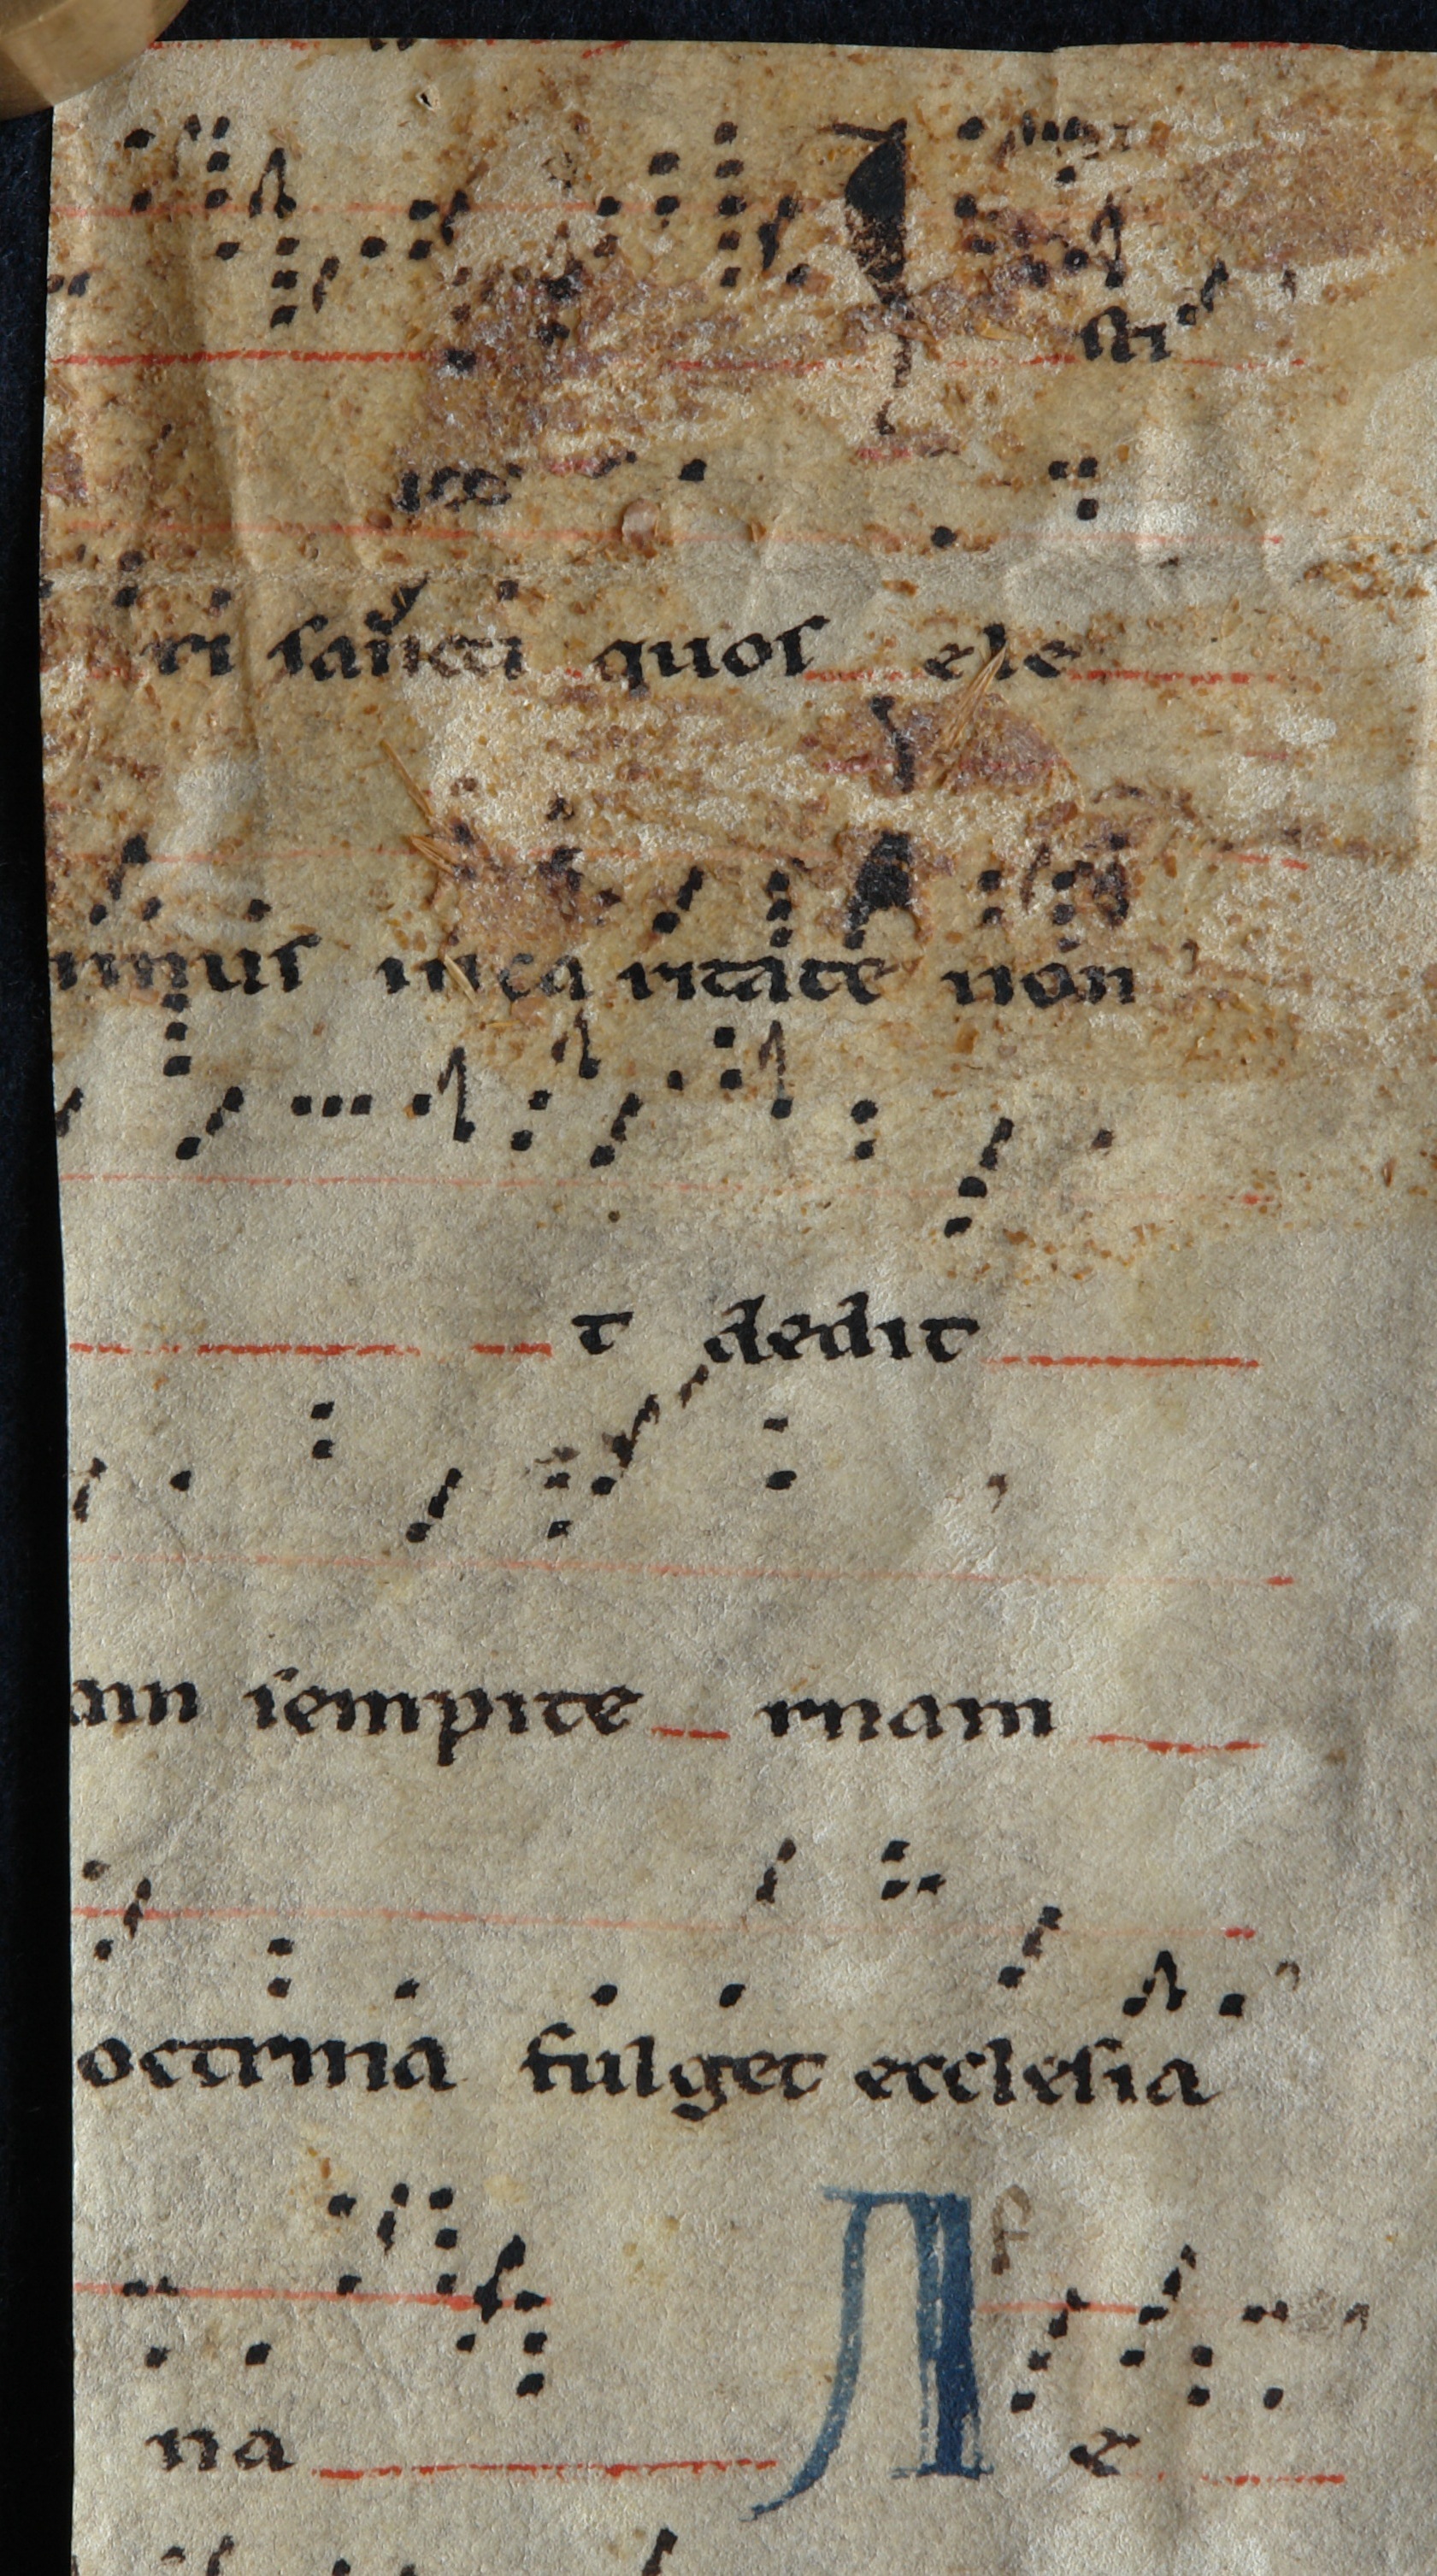 sti
ri sancti quos ele
minus in ca ritate non
t dedit
am sempite rnam
octrina fulget ecclesia
na A e